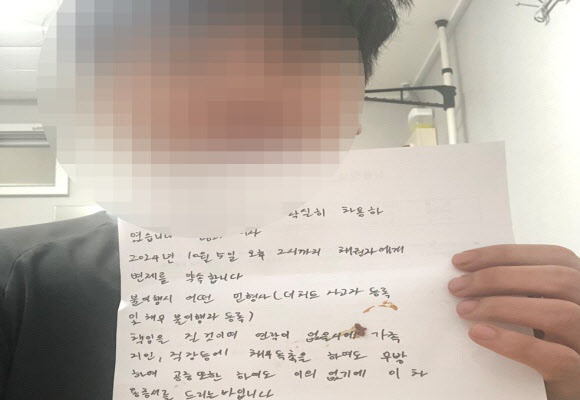 확실히 차용하
였습니
2024년 10월 5일 오후 2시까지 채권자에게
변제를 약속합니다
불이행시 어떤 민형사(더치트 사고자 등록
및 채무 불이행자 등록)
책임을 질 것이며 연락이 없을시에 가족
지인, 직장등에 채무독촉을 하여도 무방
하며 공증또한 하여도 이의 없기에 이 차
용증서를 드리는바입니다